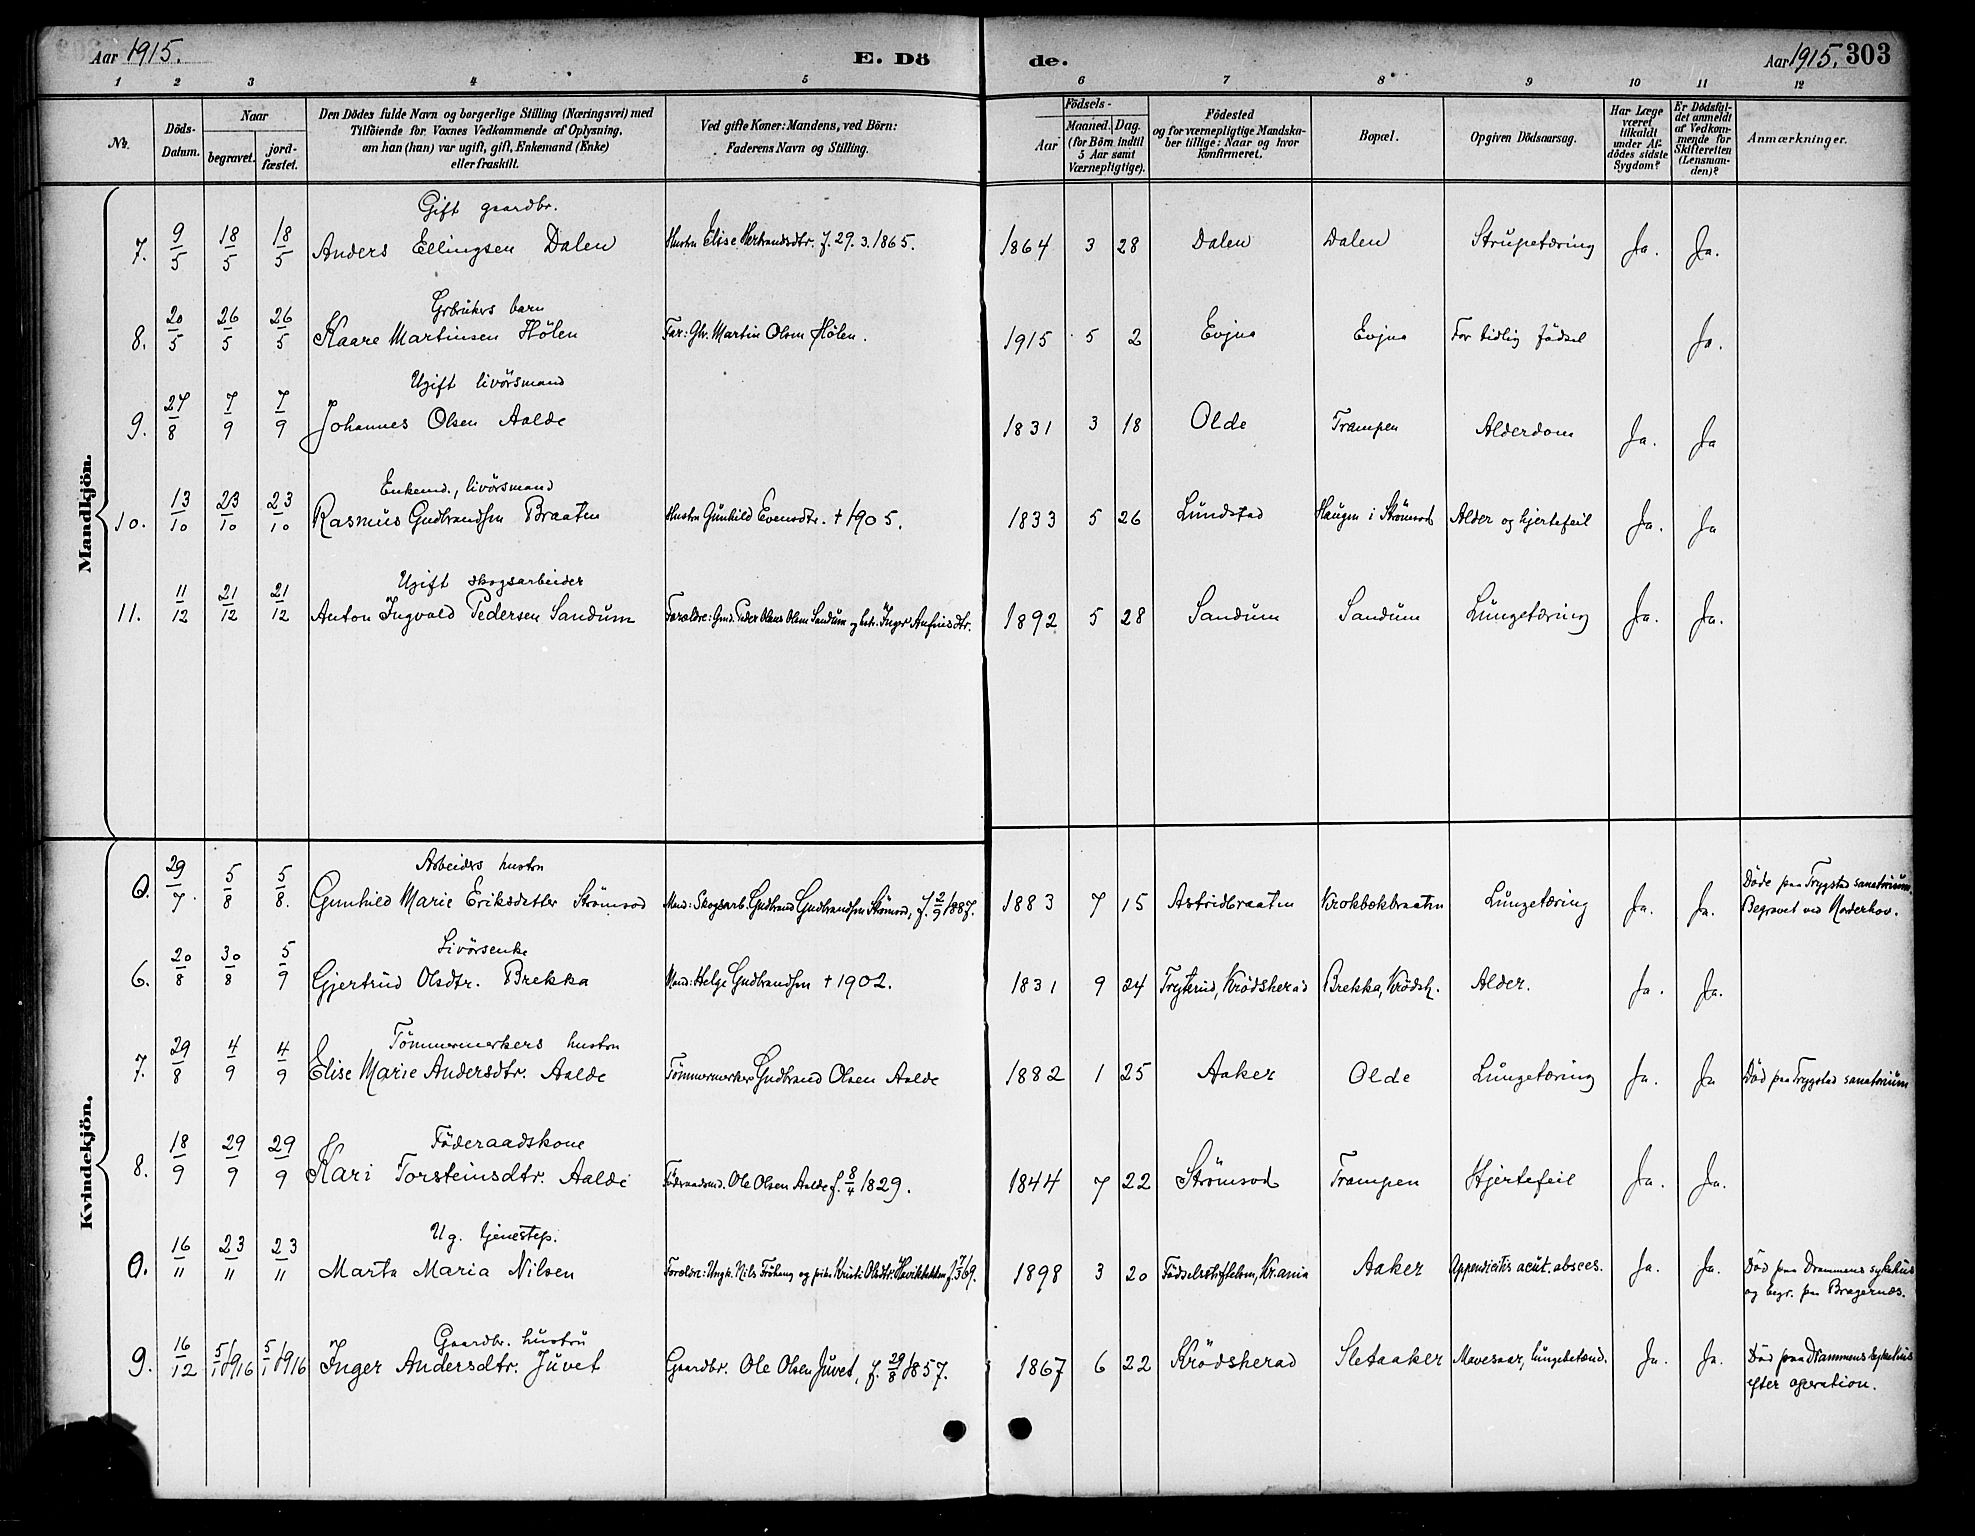 Aar 1915. E. Dö de. Aar 1915. 303
1 2 3 4 5 6 7 8 9 10 11 12
No. Döds-Datum. Naar begravet. jordfæstet. Den Dödes fulde Navn og borgerlige Stilling (Næringsvei) med Tilföiende for Voxnes Vedkommende af Oplysning, om han (hun) var ugift, gift, Enkemand (Enke) eller fraskilt. Ved gifte Koner: Mandens, ved Börn: Faderens Navn og Stilling. Födsels- Aar Maaned. Dag. (for Börn indtil 5 Aar samt Værnepligtige). Födested og for værnepligtige Mandskaber tillige: Naar og hvor konfirmeret. Bopæl. Opgiven Dödsaarsag. Har Læge været tilkaldt under Afdödes sidste Sygdom? Er Dödsfaldet anmeldt af Vedkommende for Skifteretten (Lensmanden)? Anmærkninger.
Mandkjön.
Gift gaardbr.
7. 9/5 18/5 18/5 Anders Ellingsen Dalen Hustru Elise Hertrandsdtr. f. 29.3.1865. 1864 3 28 Dalen Dalen Strupetæring Ja. Ja.
Grbrukers barn
8. 20/5 26/5 26/5 Kaare Martinsen Hölen Far: Gbr. Martin Olsen Hölen. 1915 5 2 Evjua Evjua For tidlig födsel Ja.
Ugift livörsmand
9. 27/8 7/9 7/9 Johannes Olsen Aalde 1831 3 18 Olde Trampen Alderdom Ja. Ja
Enkemd., livörsmand
10. 13/10 23/10 23/10 Rasmus Gudbrandsen Braaten Hustru Gunhild Evensdtr. + 1905. 1833 5 26 Lundstad Haugen i Strömsod Alder og hjertefeil Ja. Ja
Ugift skogsarbeider
11. 11/12 21/12 21/12 Anton Ingvald Pedersen Sandum Forældre: Gmd. Peder Olaus Olsen Sandum og hst. Inger Anfinsdtr. 1892 5 28 Sandum Sandum Lungetæring Ja. Ja.
Kvindekjön.
Arbeiders hustru
0. 29/7 5/8 5/8. Gunhild Marie Eriksdatter Strömsod Mand: Skogsarb. Gudbrand Gudbrandsen Strömsod, f. 2/9 1887. 1883 7 15 Astridbraaten Krokbækbraaten Lungetæring Ja. Ja. Döde paa Trygstad sanatorium. Begravet ved Norderhov.
Livörsenke
6. 20/8 30/8 5/9 Gjertrud Olsdtr. Brekka Mand: Helge Gudbrandsen + 1902. 1831 9 24 Tryterud, Krödsherad Brekka, Krödsh. Alder. Ja. Ja.
Tömmermerkers hustru
7. 29/8 4/9 4/9 Elise Marie Andersdtr. Aalde Tömmermerker Gudbrand Olsen Aalde 1882 1 25 Aaker Olde Lungetæring Ja. Ja Död paa Trygstad sanatorium
Föderaadskone
8. 18/9 29/9 29/9 Kari Torsteinsdtr. Aalde Föderaadsmd. Ole Olsen Aalde f. 8/4 1829. 1844 7 22 Strömsod Trampen Hjertefeil Ja. Ja.
Ug. tjenestep.
0. 16/11 23/11 23/11 Marta Maria Nilsen Forældre: Ungk. Nils Fröhaug og pike Kristi Olsdtr. 1898 3 20 Födselsstiftelsen, Kr.ania Aaker Appendicitis acut. absces. Ja. Ja. Död paa Drammens sykehus og begr. paa Bragernæs.
Gaardbr. hustru
9. 16/12 5/1 1916 5/1 1916 Inger Andersdtr. Juvet Gaardbr. Ole Olsen Juvet, f. 29/8 1857. 1867 6 22 Krödsherad Sletaaker Mavesaar, lungebetænd. Ja. Ja. Död paa Drammens sykehus efter operation.